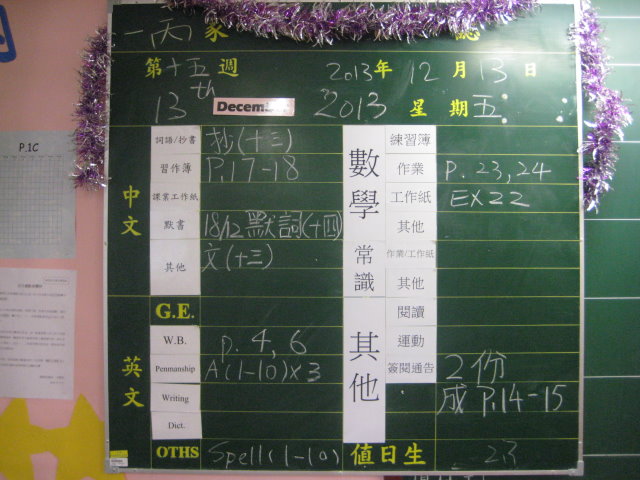 一丙 家 誌
第十五週 2013年 12月 13日
13th December 2013 星期五
P.1C
中文
詞語/抄書 抄(十三)
習作簿 P.17-18
課業工作紙
默書 18/12 默詞(十四)
其他 文(十三)
英文
G.E.
W.B. p. 4, 6
Penmanship A(1-10)x3
Writing
Dict.
OTHS Spell(1-10)
數學
練習簿
作業 P. 23, 24
工作紙 EX22
其他
常識
作業/工作紙
其他
其他
閱讀
運動
簽閱通告 2份
成 P.14-15
值日生 23